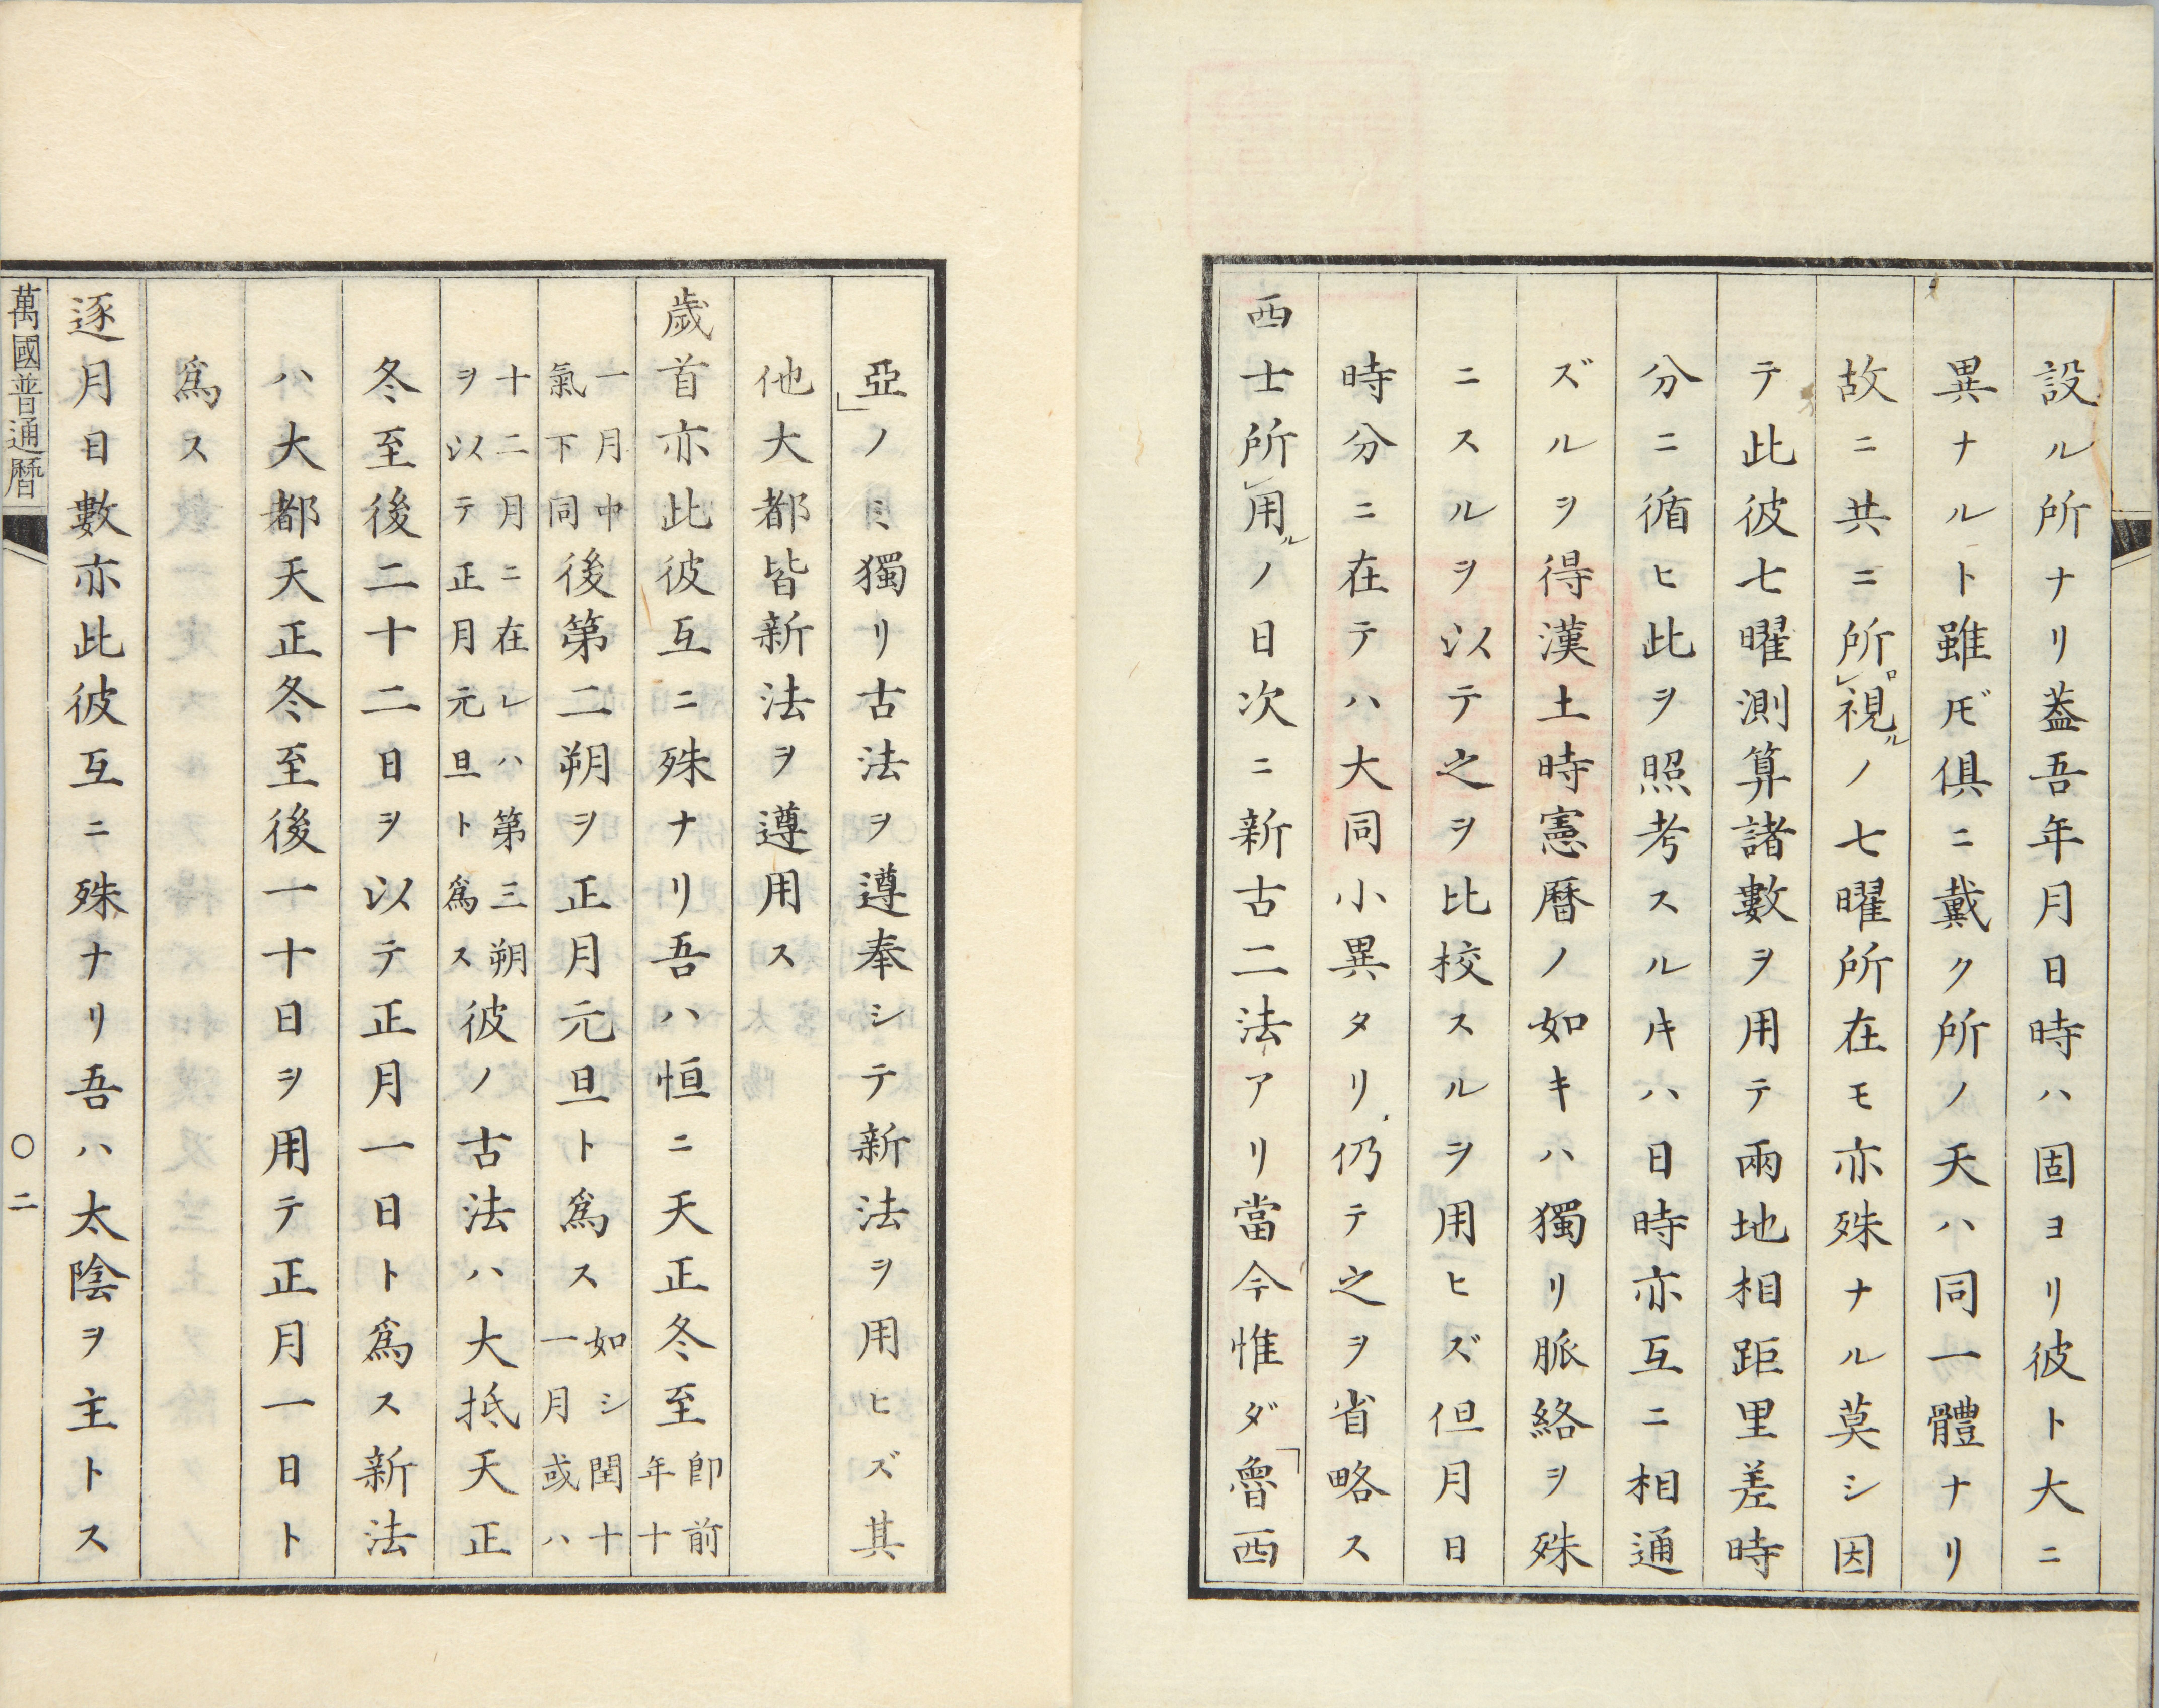 設ル所ナリ蓋吾年月日時ハ固ヨリ彼ト大ニ
異ナルト雖𪜈俱ニ戴ク所ノ天ハ同一體ナリ
故ニ共ニ所レ視ルノ七曜所在モ亦殊ナル莫シ因
テ此彼七曜測算諸數ヲ用テ兩地相距里差時
分ニ循ヒ此ヲ照考スルキハ日時亦互ニ相通
ズルヲ得漢土時憲曆ノ如キハ獨リ脈絡ヲ殊
ニスルヲ以テ之ヲ比校スルヲ用ヒズ但月日
時分ニ在テハ大同小異タリ仍テ之ヲ省略ス
西士所レ用ルノ日次ニ新古二法アリ當今惟ダ「魯西
亞」ノミ獨リ古法ヲ遵奉シテ新法ヲ用ヒズ其
他大都皆新法ヲ遵用ス
歲首亦此彼互ニ殊ナリ吾ハ恒ニ天正冬至卽前年十
一月中氣下同後第二朔ヲ正月元旦ト爲ス如シ閏十一月或ハ
十二月ニ在レハ第三朔ヲ以テ正月元旦ト爲ス彼ノ古法ハ大抵天正
冬至後二十二日ヲ以テ正月一日ト爲ス新法
ハ大都天正冬至後一十日ヲ用テ正月一日ト
爲ス
逐月日數亦此彼互ニ殊ナリ吾ハ太陰ヲ主トス
萬國普通曆
〇二